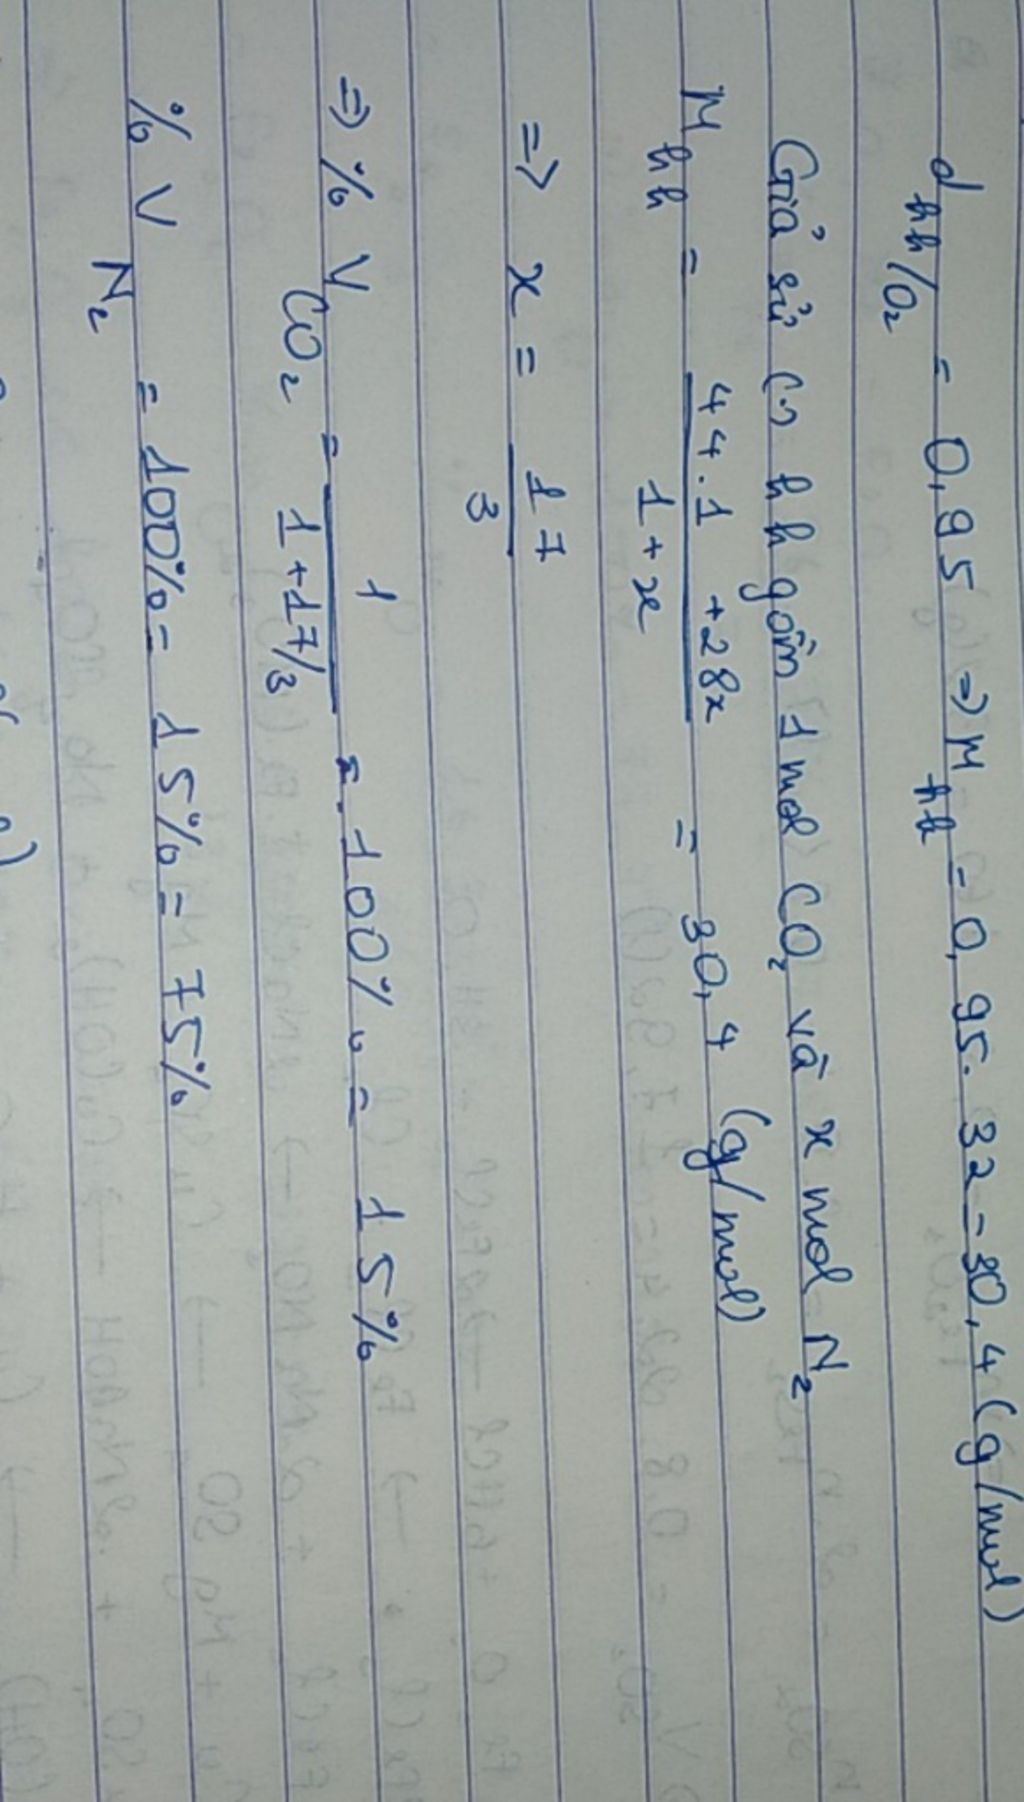 d hh/O₂ = 0,95 => M hh = 0,95.32 = 30,4 (g/mol)
Giả sử có hh gồm 1 mol CO₂ và x mol N₂
M hh = (44.1 + 28x)/(1 + x) = 30,4 (g/mol)
=> x = 17/3
=> % V CO₂ = 1/(1 + 17/3) . 100% = 15%
% V N₂ = 100% - 15% = 75%